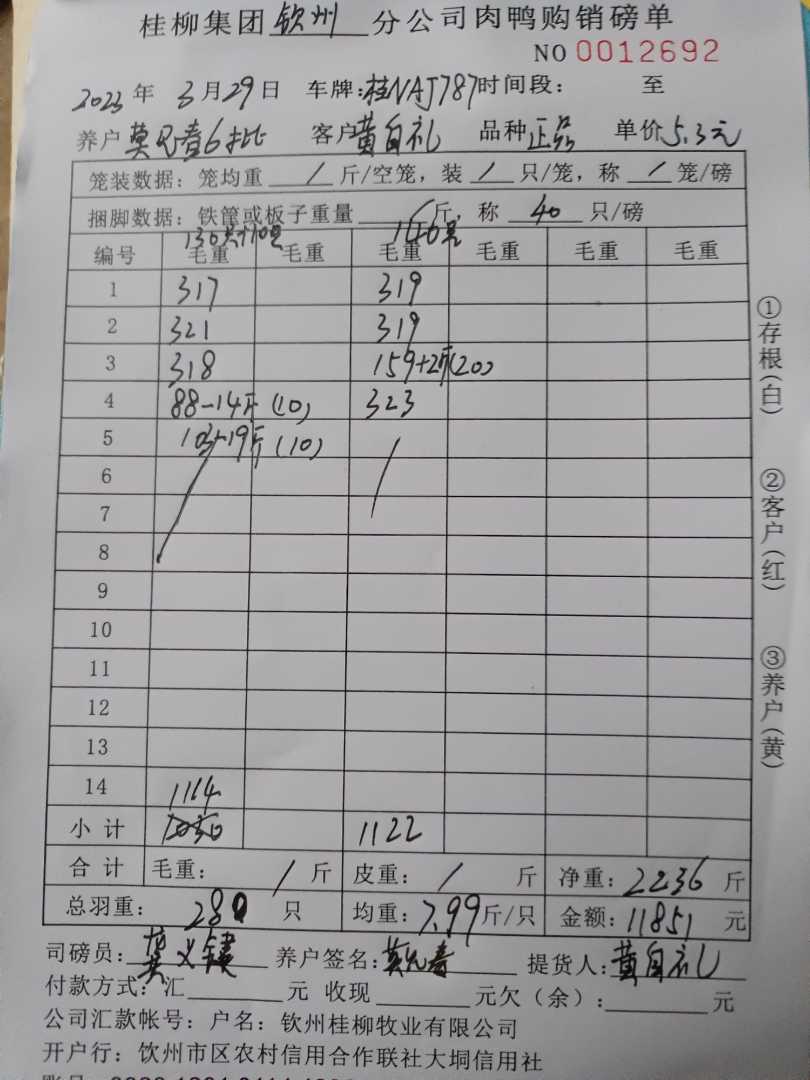 桂柳集团 钦州 分公司肉鸭购销磅单
NO 0012692
2023年 3月29日 车牌:桂NAJ787时间段: 至
养户 莫 春6批 客户 黄自礼 品种 正品 单价 5.3元
笼装数据: 笼均重 / 斤/空笼, 装 / 只/笼, 称 / 笼/磅
捆脚数据: 铁筐或板子重量 / 斤, 称 40 只/磅
编号 毛重 毛重 毛重 毛重 毛重 毛重
1 317 319
2 321 319
3 318 159+2斤(20)
4 88-14斤(10) 323
5 103-19斤(10) /
6
7
8
9
10
11
12
13
14 1114
小计 1030 1122
合计 毛重: / 斤 皮重: / 斤 净重: 2236 斤
总羽重: 280 只 均重: 7.99斤/只 金额: 11851 元
司磅员: 莫义 养户签名: 莫 春 提货人: 黄自礼
付款方式: 汇 元 收现 元欠(余): 元
公司汇款帐号: 户名: 钦州桂柳牧业有限公司
开户行: 钦州市区农村信用合作联社大垌信用社
①存根(白)
②客户(红)
③养户(黄)